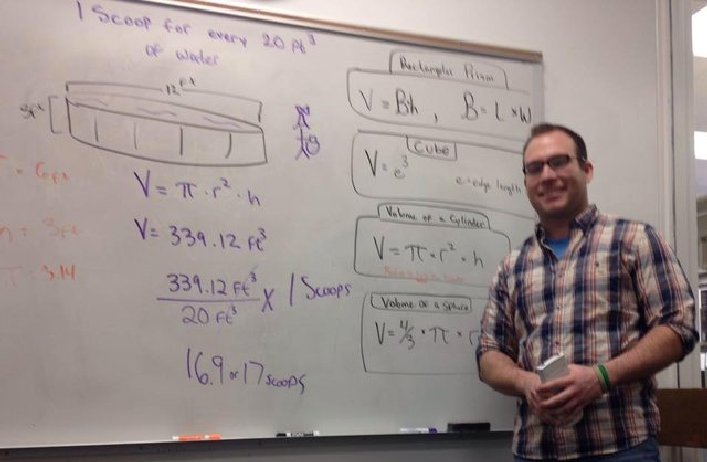 1 Scoop for every 20 ft³
of water
12 ft
3ft
r = 6ft
h = 3ft
π = 3.14
V = π · r² · h
V = 339.12 ft³
339.12 ft³ x 1 Scoops
20 ft³
16.9 or 17 scoops
Rectangular Prism
V = Bh , B = L × W
Cube
V = e³
e = edge length
Volume of a Cylinder
V = π · r² · h
Volume of a sphere
V = 4/3 · π · r